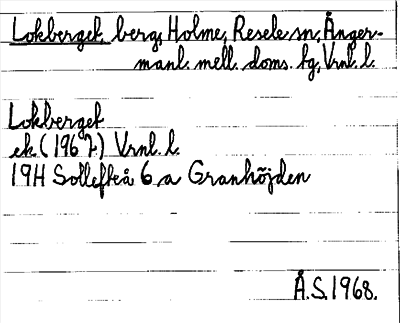 Lokberget, berg, Holme, Resele sn, Ånger-
manl. mell. doms. fg, Vrnl. l.
Lokberget
ek (1967) Vrnl. l.
19H Sollefteå 6 a Granhöjden
Å.S. 1968.